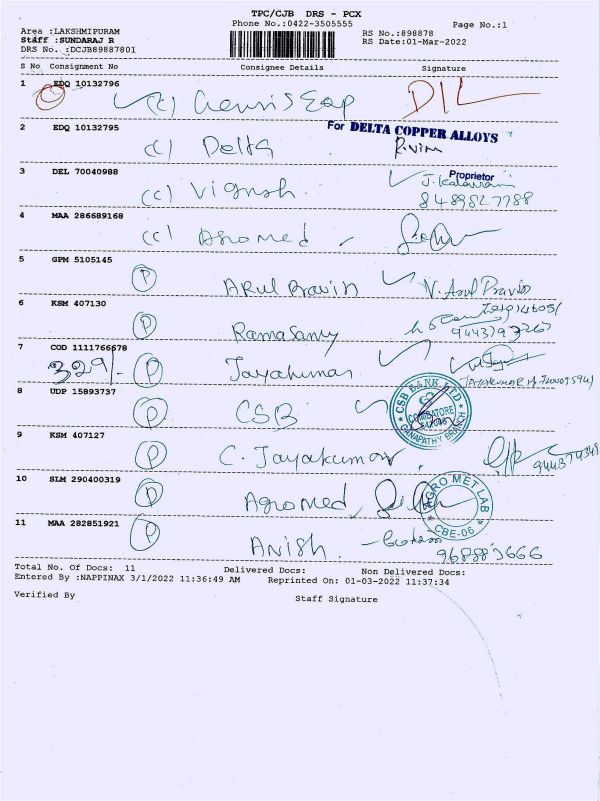 TPC/CJB DRS - PCX
Phone No.:0422-3505555
Page No.:1
Area :LAKSHMIPURAM
RS No.:898878
Staff :SUNDARAJ R
RS Date:01-Mar-2022
DRS No. :DCJB89887801
S No Consignment No Consignee Details Signature
1 EDQ 10132796 (c) DIL
2 EDQ 10132795 (c) Delta For DELTA COPPER ALLOYS
Proprietor
3 DEL 70040988 (c) Vignesh
8489827788
4 MAA 286689168 (c) Agromed
5 GPM 5105145 (P) ARul Pravin V. Arul Pravin
6 KSM 407130 (P) Ramasamy
7 COD 1111766678
329/- (P) Jayakumar
8 UDP 15893737 (P) CSB CSB BANK LTD COIMBATORE GANAPATHY BRANCH
9 KSM 407127 (P) C. Jayakumar
10 SLM 290400319 (P) Agromed AGRO MET LAB CBE-06
11 MAA 282851921 (P) Anish.
Total No. Of Docs: 11 Delivered Docs: Non Delivered Docs:
Entered By :NAPPINAX 3/1/2022 11:36:49 AM Reprinted On: 01-03-2022 11:37:34
Verified By Staff Signature